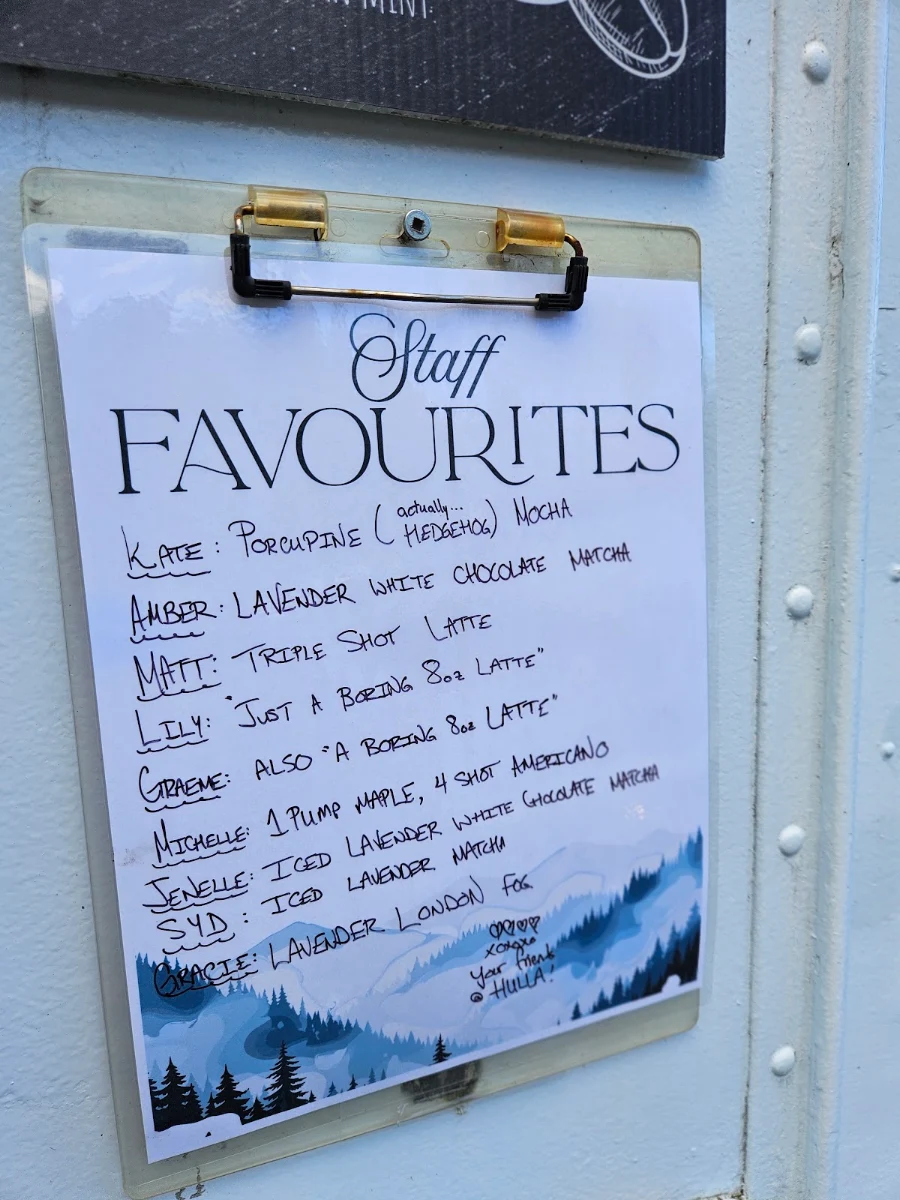 MINT.
Staff
FAVOURITES
KATE: PORCUPINE (actually... HEDGEHOG) MOCHA
AMBER: LAVENDER WHITE CHOCOLATE MATCHA
MATT: TRIPLE SHOT LATTE
LILY: "JUST A BORING 8oz LATTE"
GRAEME: ALSO "A BORING 8oz LATTE"
MICHELLE: 1 PUMP MAPLE, 4 SHOT AMERICANO
JENELLE: ICED LAVENDER WHITE CHOCOLATE MATCHA
SYD: ICED LAVENDER MATCHA
GRACIE: LAVENDER LONDON FOG
xoxoxo
your friends
@ HULLA!